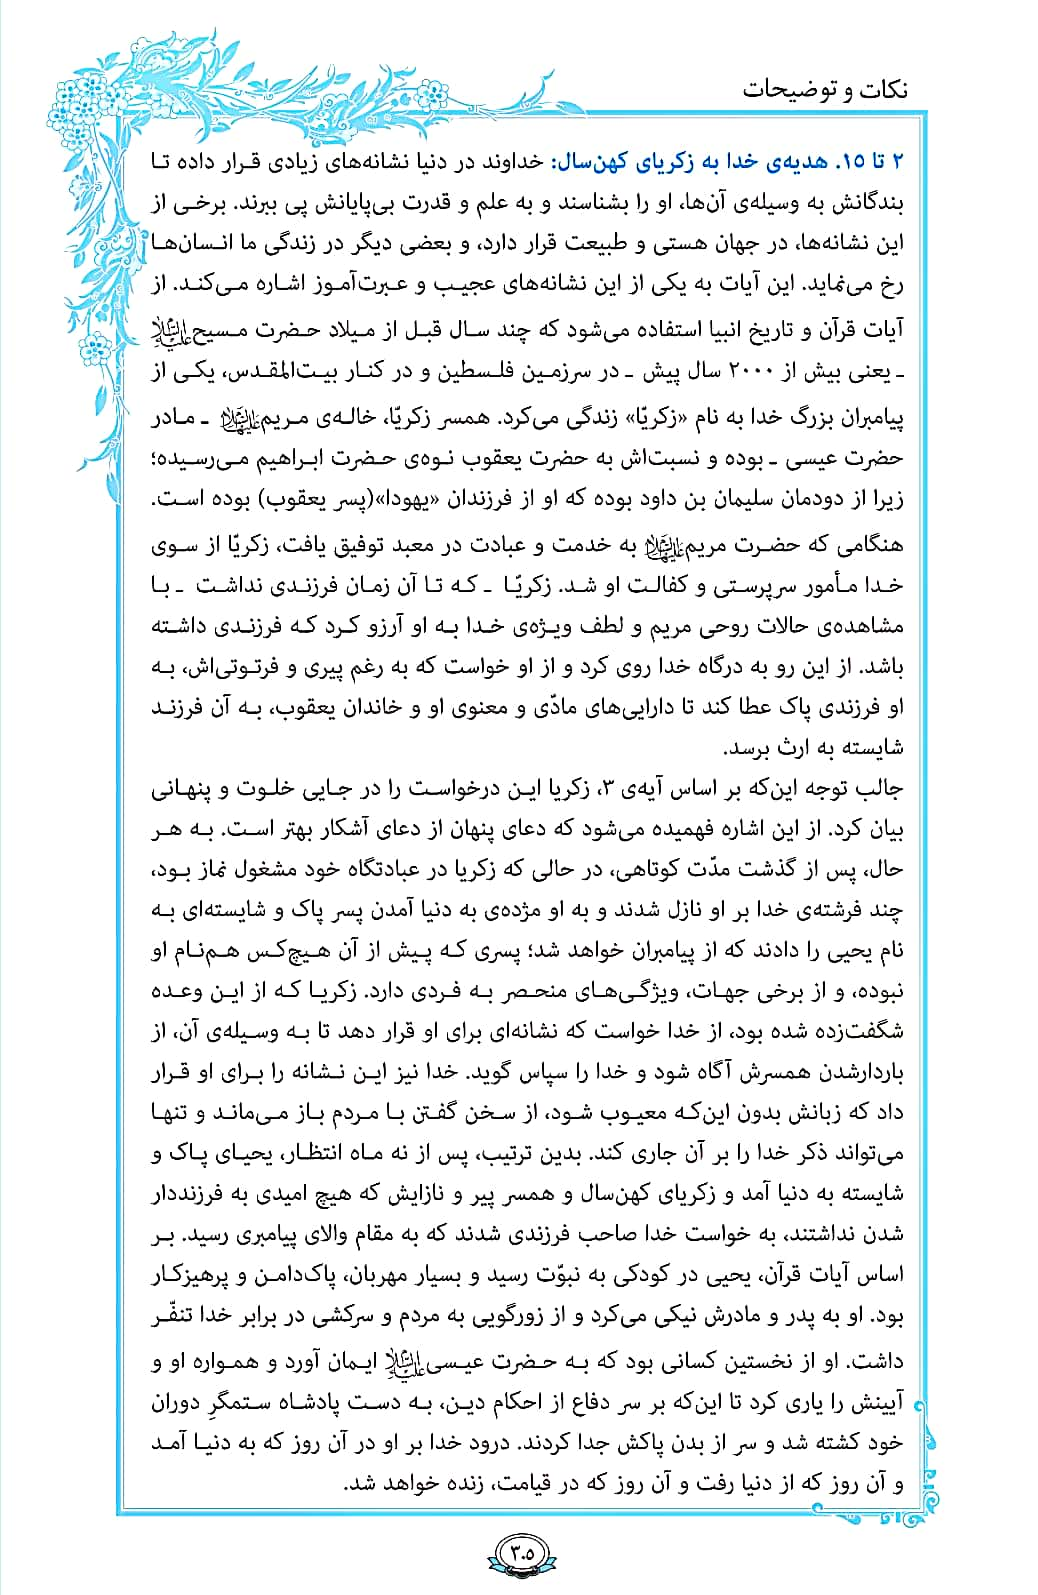 نکات و توضیحات
۲ تا ۱۵. هدیه‌ی خدا به زکریای کهن‌سال: خداوند در دنیا نشانه‌های زیادی قرار داده تا
بندگانش به وسیله‌ی آن‌ها، او را بشناسند و به علم و قدرت بی‌پایانش پی ببرند. برخی از
این نشانه‌ها، در جهان هستی و طبیعت قرار دارد، و بعضی دیگر در زندگی ما انسان‌ها
رخ می‌نماید. این آیات به یکی از این نشانه‌های عجیب و عبرت‌آموز اشاره می‌کند. از
آیات قرآن و تاریخ انبیا استفاده می‌شود که چند سال قبل از میلاد حضرت مسیح علیه السلام
ـ یعنی بیش از ۲۰۰۰ سال پیش ـ در سرزمین فلسطین و در کنار بیت‌المقدس، یکی از
پیامبران بزرگ خدا به نام «زکریّا» زندگی می‌کرد. همسر زکریّا، خاله‌ی مریم علیها السلام ـ مادر
حضرت عیسی ـ بوده و نسبت‌اش به حضرت یعقوب نوه‌ی حضرت ابراهیم می‌رسیده؛
زیرا از دودمان سلیمان بن داود بوده که او از فرزندان «یهودا»(پسر یعقوب) بوده است.
هنگامی که حضرت مریم علیها السلام به خدمت و عبادت در معبد توفیق یافت، زکریّا از سوی
خدا مأمور سرپرستی و کفالت او شد. زکریّا ـ که تا آن زمان فرزندی نداشت ـ با
مشاهده‌ی حالات روحی مریم و لطف ویژه‌ی خدا به او آرزو کرد که فرزندی داشته
باشد. از این رو به درگاه خدا روی کرد و از او خواست که به رغم پیری و فرتوتی‌اش، به
او فرزندی پاک عطا کند تا دارایی‌های مادّی و معنوی او و خاندان یعقوب، به آن فرزند
شایسته به ارث برسد.
جالب توجه این‌که بر اساس آیه‌ی ۳، زکریا این درخواست را در جایی خلوت و پنهانی
بیان کرد. از این اشاره فهمیده می‌شود که دعای پنهان از دعای آشکار بهتر است. به هر
حال، پس از گذشت مدّت کوتاهی، در حالی که زکریا در عبادتگاه خود مشغول نماز بود،
چند فرشته‌ی خدا بر او نازل شدند و به او مژده‌ی به دنیا آمدن پسر پاک و شایسته‌ای به
نام یحیی را دادند که از پیامبران خواهد شد؛ پسری که پیش از آن هیچ‌کس هم‌نام او
نبوده، و از برخی جهات، ویژگی‌های منحصر به فردی دارد. زکریا که از این وعده
شگفت‌زده شده بود، از خدا خواست که نشانه‌ای برای او قرار دهد تا به وسیله‌ی آن، از
باردارشدن همسرش آگاه شود و خدا را سپاس گوید. خدا نیز این نشانه را برای او قرار
داد که زبانش بدون این‌که معیوب شود، از سخن گفتن با مردم باز می‌ماند و تنها
می‌تواند ذکر خدا را بر آن جاری کند. بدین ترتیب، پس از نه ماه انتظار، یحیای پاک و
شایسته به دنیا آمد و زکریای کهن‌سال و همسر پیر و نازایش که هیچ امیدی به فرزنددار
شدن نداشتند، به خواست خدا صاحب فرزندی شدند که به مقام والای پیامبری رسید. بر
اساس آیات قرآن، یحیی در کودکی به نبوّت رسید و بسیار مهربان، پاک‌دامن و پرهیزکار
بود. او به پدر و مادرش نیکی می‌کرد و از زورگویی به مردم و سرکشی در برابر خدا تنفّر
داشت. او از نخستین کسانی بود که به حضرت عیسی علیه السلام ایمان آورد و همواره او و
آیینش را یاری کرد تا این‌که بر سر دفاع از احکام دین، به دست پادشاه ستمگرِ دوران
خود کشته شد و سر از بدن پاکش جدا کردند. درود خدا بر او در آن روز که به دنیا آمد
و آن روز که از دنیا رفت و آن روز که در قیامت، زنده خواهد شد.
۳۰۵